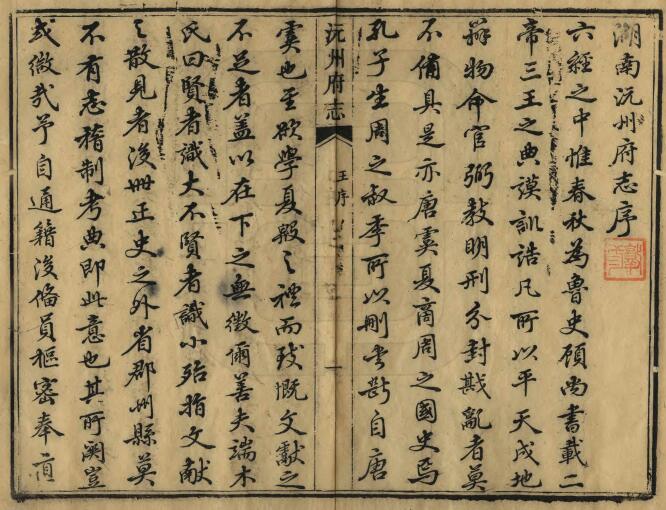 湖南沅州府志序
六經之中惟春秋為魯史顧尚書載二
帝三王之典謨訓誥凡所以平天成地
辨物命官弼教明刑分封戡亂者莫
不備具是亦唐虞夏商周之國史焉
孔子生周之叔季所以刪書斷自唐
沅州府志
王序
一
虞也至欲學夏殷之禮而致慨文獻之
不足者蓋以在下之無徵爾善夫端木
氏曰賢者識大不賢者識小殆指文獻
之散見者後世正史之外省郡州縣莫
不有志稽制考典即此意也其所闕豈
或微哉予自通籍後備員樞密奉直